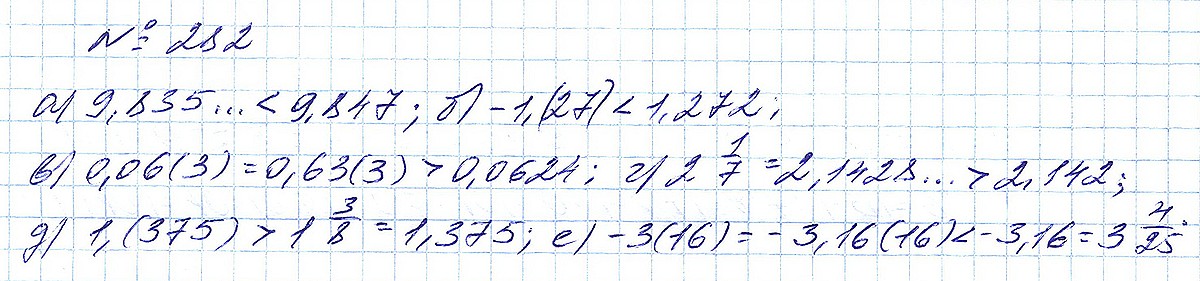 № 282
а) 9,835... < 9,847; б) -1,(27) < 1,272;
в) 0,06(3) = 0,63(3) > 0,0624; г) 2 1/7 = 2,1428... > 2,142;
д) 1,(375) > 1 3/8 = 1,375; е) -3(16) = -3,16(16) < -3,16 = 3 4/25.